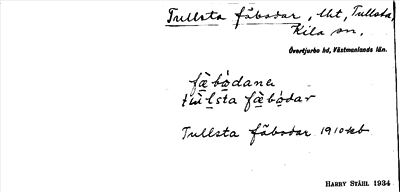 Tullsta fäbodar, Ukt, Tullsta,
Kila sn,
Övertjurbo hd, Västmanlands län.
fä̀bódana
tùlsta fä̀bódar
Tullsta fäbodar 1910 kb
HARRY STÅHL 1934